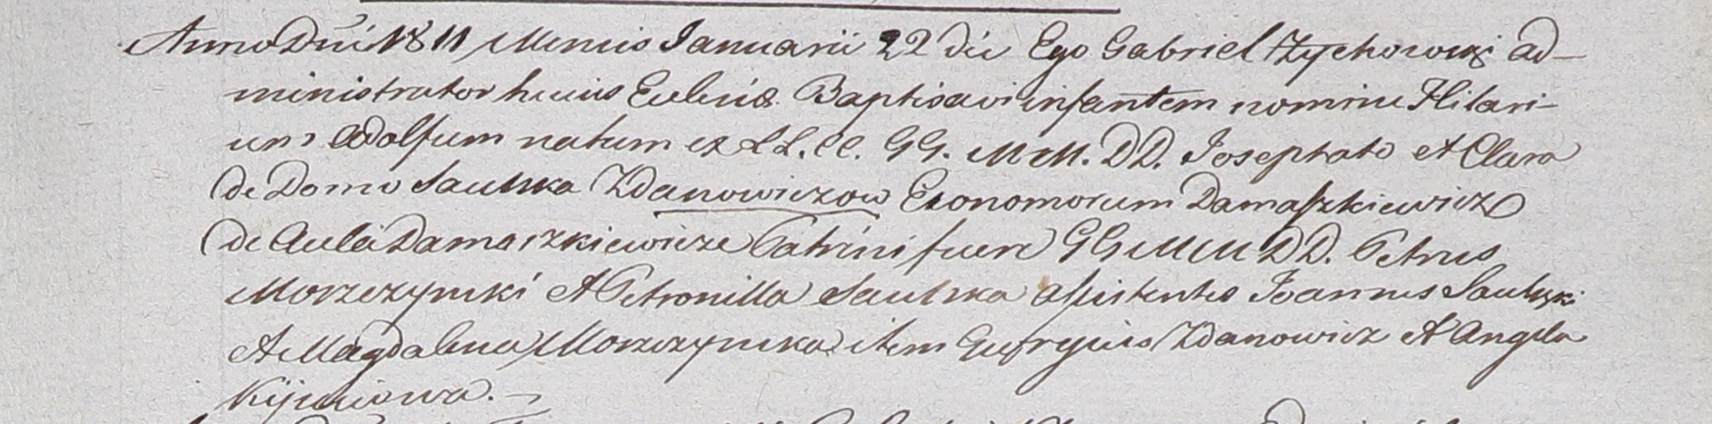 Anno Dni 1811 Mensis Januarii 22 die Ego Gabriel Zychowski ad-
ministrator huius Ecclesiæ Baptisavi infantem nomine Hilari-
um Adolfum natum ex LL. CC. GG. MM. DD. Josephato et Clara
de Domo Saulska Zdanowiczow Economorum Damaszkiewicz
de Aula Damaszkiewicze Patrini fuere GG MM DD. Petrus
Morzczynski Et Petronilla Saulska Assistentes Joannes Saulski
Et Magdalena Morzczynska item Zdanowicz Et Angela